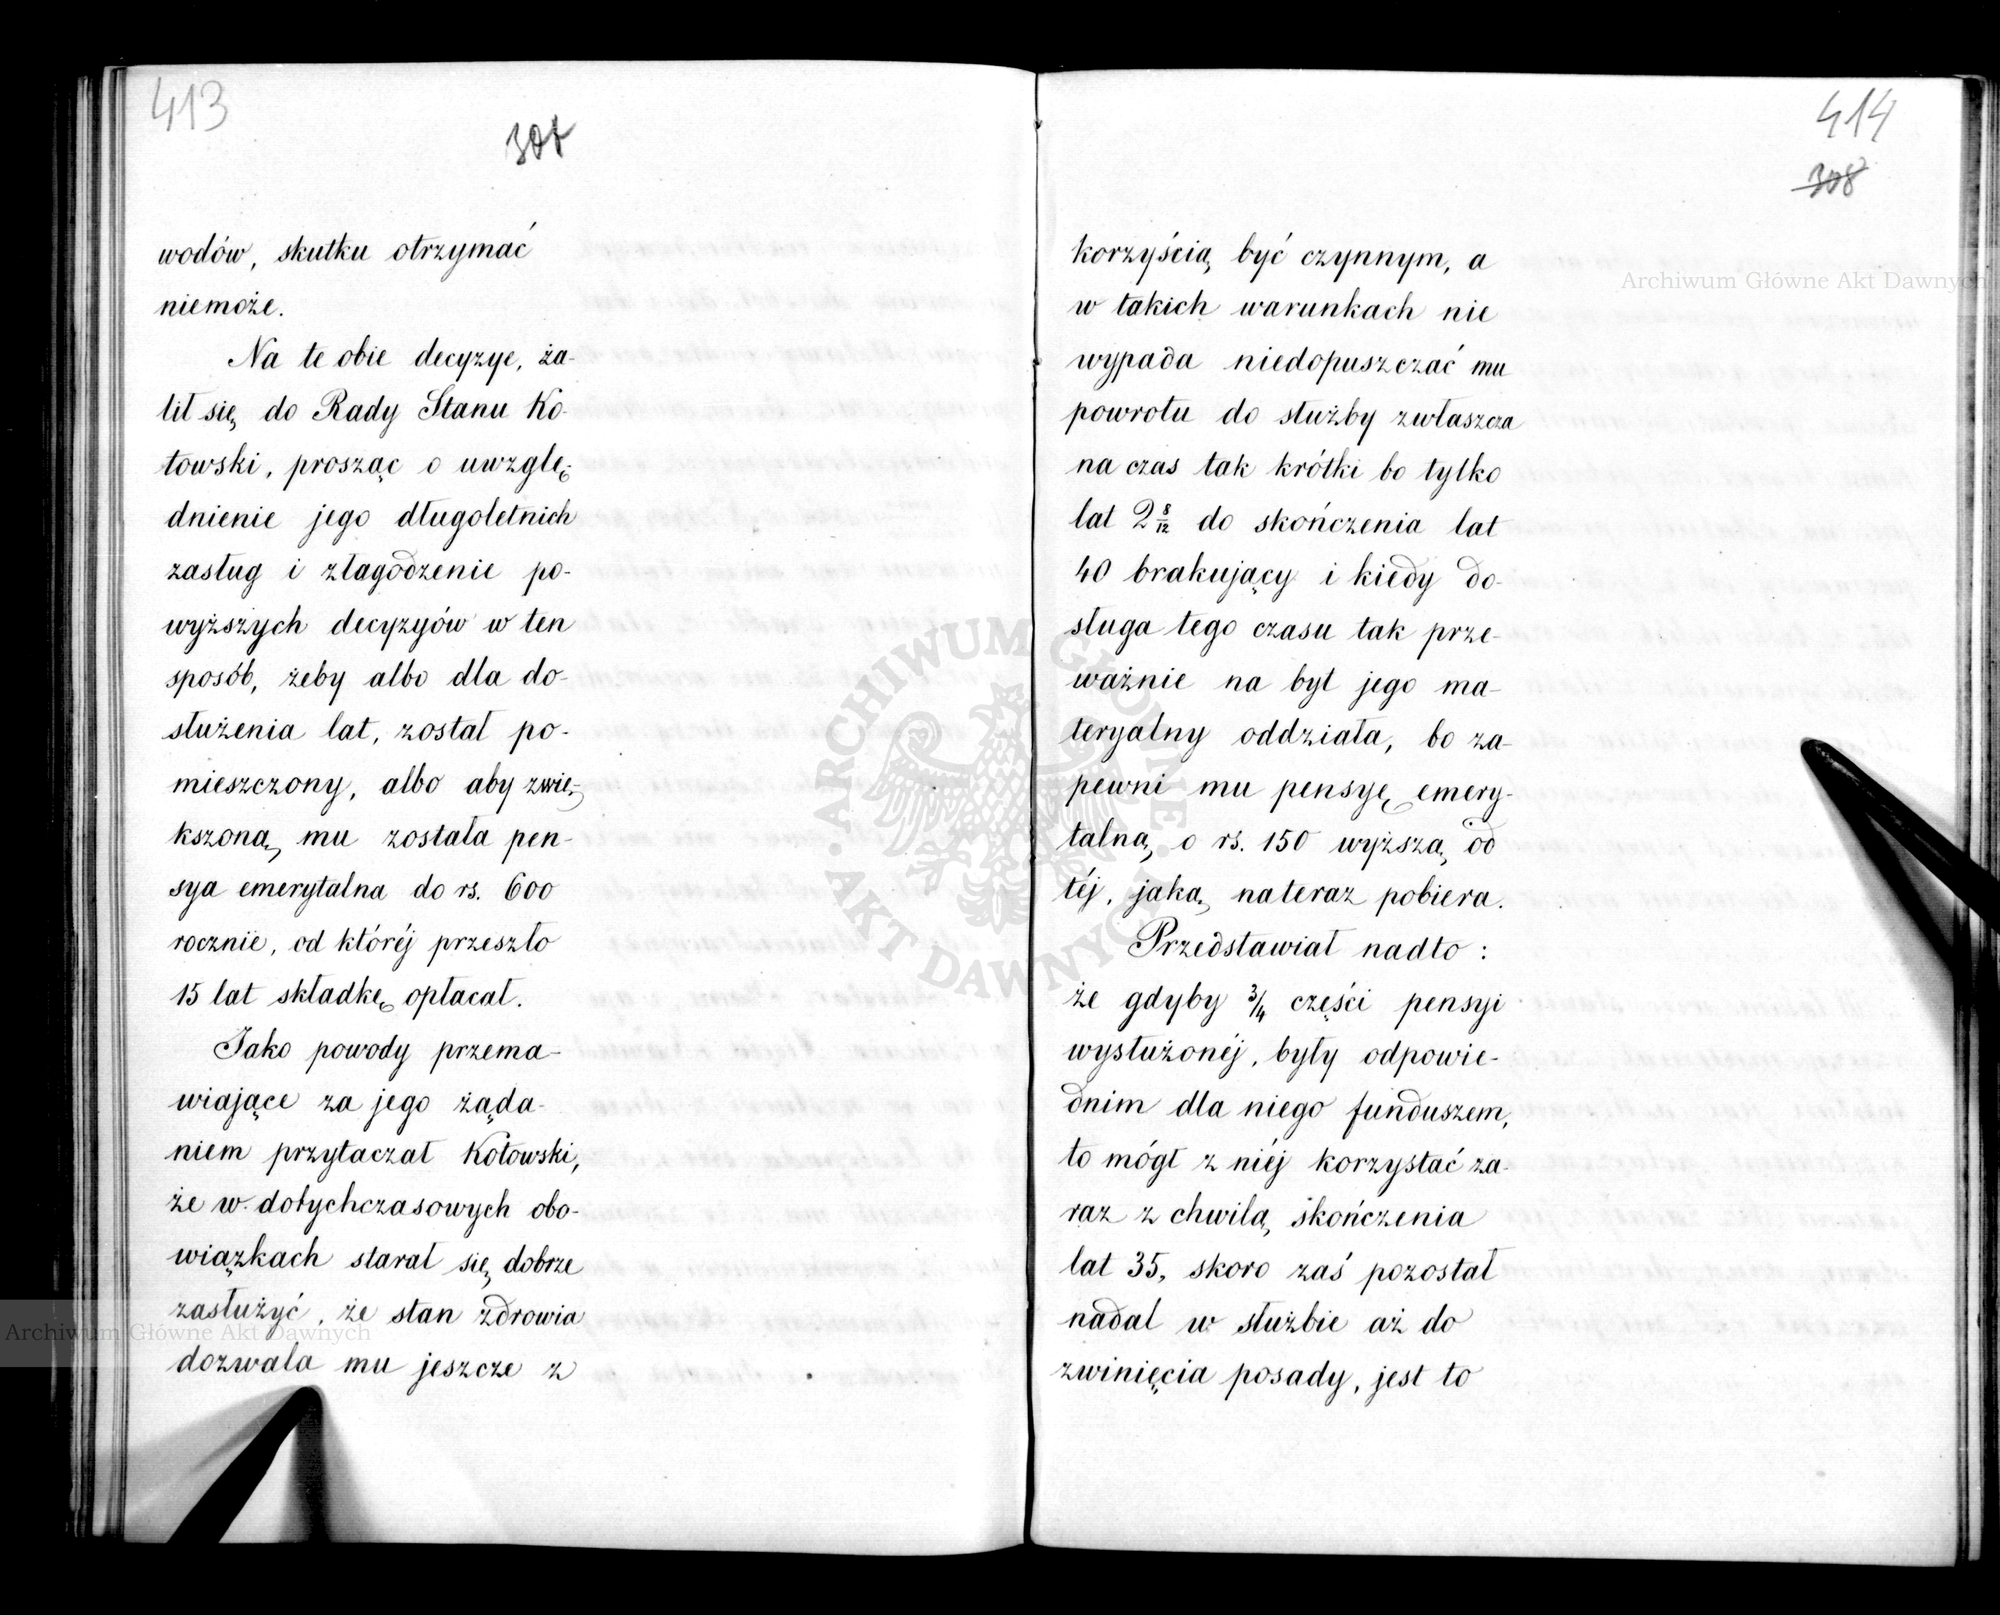 413
307
wodów, skutku otrzymać
niemoże.
Na te obie decyzye, ża-
lił się do Rady Stanu Ko-
towski, prosząc o uwzglę-
dnienie jego długoletnich
zasług i złagodzenie po-
wyższych decyzyów w ten
sposób, żeby albo dla do-
służenia lat, został po-
mieszczony, albo aby zwię-
kszoną mu została pen-
sya emerytalna do rs. 600
rocznie, od któréj przeszło
15 lat składkę opłacał.
Jako powody przema-
wiające za jego żąda-
niem przytaczał Kotowski,
że w dotychczasowych obo-
wiązkach starał się dobrze
zasłużyć, że stan zdrowia
dozwala mu jeszcze z
414
308
korzyścią być czynnym, a
w takich warunkach nie
wypada niedopuszczać mu
powrotu do służby zwłaszcza
na czas tak krótki bo tylko
lat 2 8/12 do skończenia lat
40 brakujący i kiedy do-
sługa tego czasu tak prze-
ważnie na byt jego ma-
teryalny oddziała, bo za-
pewni mu pensyę emery-
talną o rs. 150 wyższą od
téj, jaką nateraz pobiera.
Przedstawiał nadto:
że gdyby 3/4 części pensyi
wysłużonéj, były odpowie-
dnim dla niego funduszem,
to mógł z niéj korzystać za-
raz z chwilą skończenia
lat 35, skoro zaś pozostał
nadal w służbie aż do
zwinięcia posady, jest to
Archiwum Główne Akt Dawnych
Archiwum Główne Akt Dawnych
ARCHIWUM GŁÓWNE AKT DAWNYCH